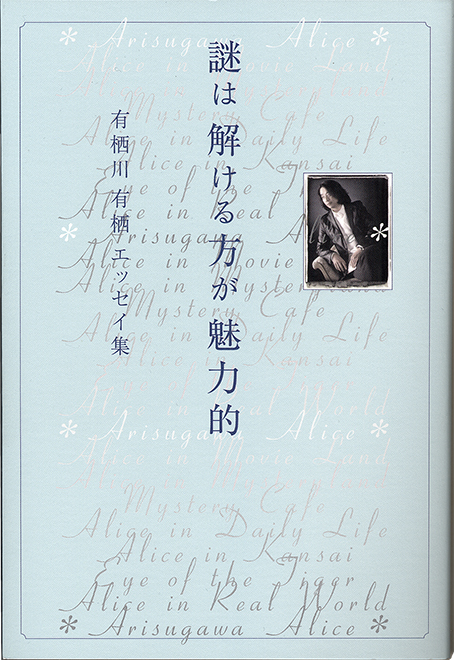 謎は解ける方が魅力的
有栖川有栖 エッセイ集
* Arisugawa Alice *
Alice in Movie Land
Alice in Mysteryland
Mystery Cafe
Alice in Daily Life
Alice in Kansai
Eye of the
Alice in Real
* Arisugawa A *
Alice in Movie
Alice in Mysteryland
Mystery Cafe
Alice in Daily Life
Alice in Kansai
Eye of the
Alice in Real World
* Arisugawa Alice *
Alice in Movie Land
Alice in Mysteryland
Mystery Cafe
Alice in Daily Life
Alice in Kansai
Eye of the Tiger
Alice in Real World
* Arisugawa Alice *